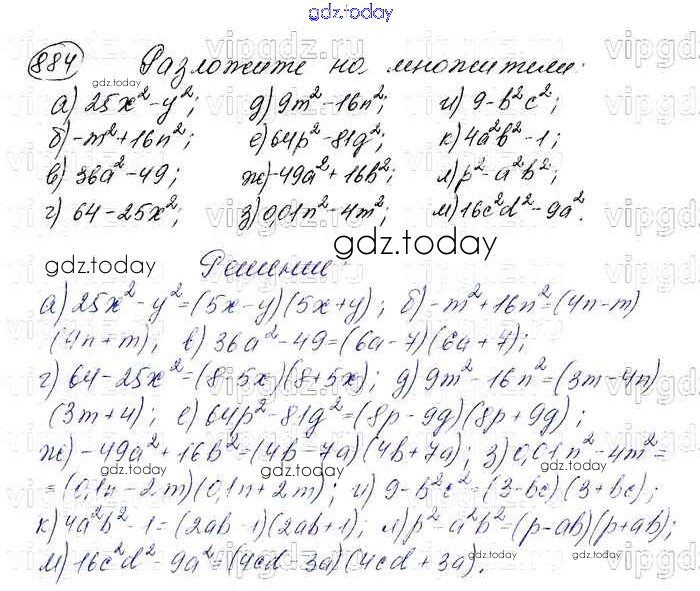 gdz.today
884 Разложите на множители:
а) 25x² - y²; д) 9m² - 16n²; и) 9 - b²c²;
б) -m² + 16n²; е) 64p² - 81g²; к) 4a²b² - 1;
в) 36a² - 49; ж) -49a² + 16b²; л) p² - a²b²;
г) 64 - 25x²; з) 0,01n² - 4m²; м) 16c²d² - 9a².
gdz.today
gdz.today
Решение:
а) 25x² - y² = (5x - y)(5x + y); б) -m² + 16n² = (4n - m)
(4n + m); в) 36a² - 49 = (6a - 7)(6a + 7);
г) 64 - 25x² = (8 - 5x)(8 + 5x); д) 9m² - 16n² = (3m - 4n)
(3m + 4); е) 64p² - 81g² = (8p - 9g)(8p + 9g);
ж) -49a² + 16b² = (4b - 7a)(4b + 7a); з) 0,01n² - 4m² =
= (0,1n - 2m)(0,1n + 2m); и) 9 - b²c² = (3 - bc)(3 + bc);
к) 4a²b² - 1 = (2ab - 1)(2ab + 1); л) p² - a²b² = (p - ab)(p + ab);
м) 16c²d² - 9a² = (4cd - 3a)(4cd + 3a).